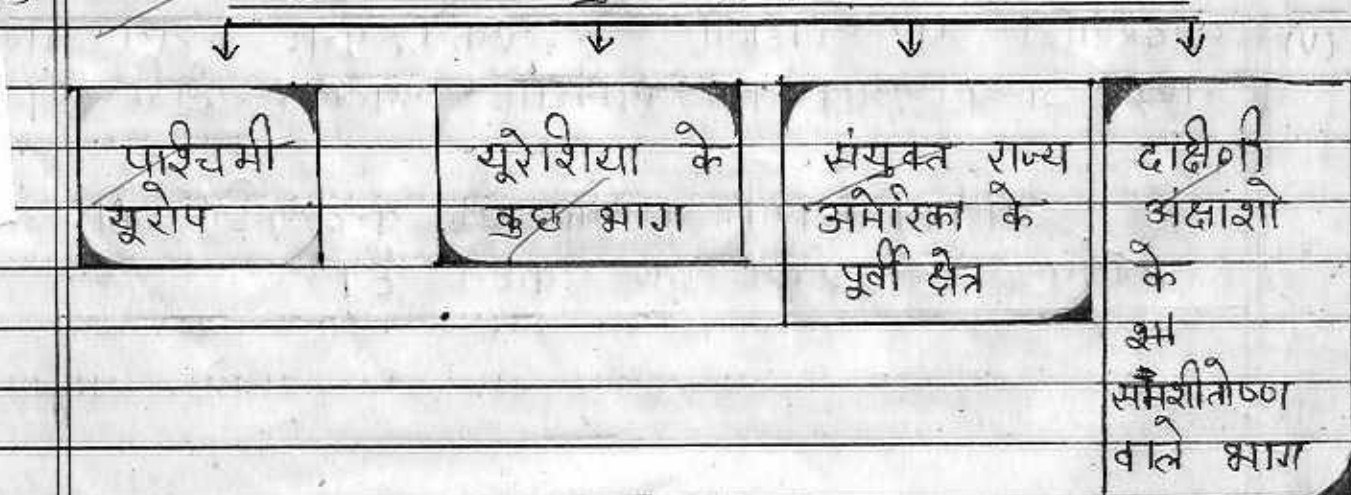 पश्चिमी
यूरोप
यूरेशिया के
कुछ भाग
संयुक्त राज्य
अमेरिका के
पूर्वी क्षेत्र
दक्षिणी
अंक्षाशो
के
समशीतोष्ण
वाले भाग